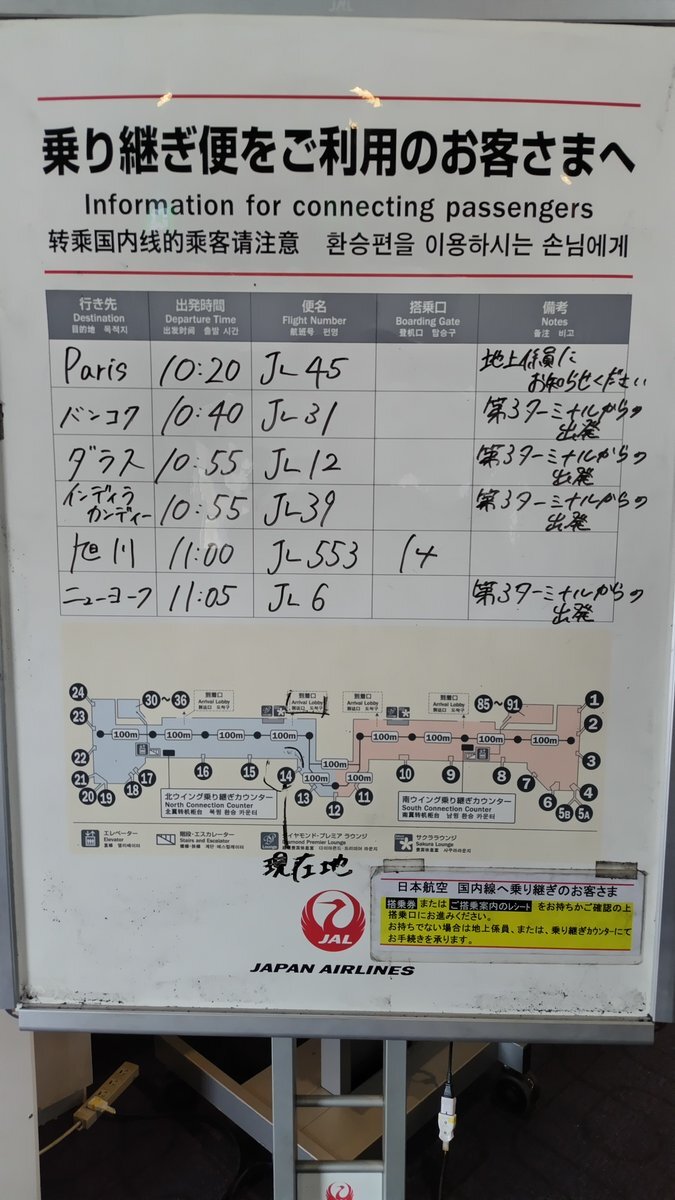 JAL
乗り継ぎ便をご利用のお客さまへ
Information for connecting passengers
转乘国内线的乘客请注意 환승편을 이용하시는 손님에게
行き先 出発時間 便名 搭乗口 備考
Destination Departure Time Flight Number Boarding Gate Notes
目的地 목적지 出发时间 출발 시간 航班号 편명 登机口 탑승구 备注 비고
Paris 10:20 JL 45 地上係員に
お知らせください
バンコク 10:40 JL 31 第3ターミナルからの
出発
ダラス 10:55 JL 12 第3ターミナルからの
出発
インディラ
カンディー 10:55 JL 39 第3ターミナルからの
出発
旭川 11:00 JL 553 14
ニューヨーク 11:05 JL 6 第3ターミナルからの
出発
到着口 到着口 到着口 到着口
Arrival Lobby Arrival Lobby Arrival Lobby Arrival Lobby
24 30～36 85～91 1
23 2
100m 100m 100m 100m 100m 100m 100m 100m
22 3
100m
21 17 16 15 14 100m 100m 10 9 8 7 4
20 19 18 13 12 11 6 5B 5A
北ウイング乗り継ぎカウンター
North Connection Counter
北翼转机柜台 북윙 환승 카운터
南ウイング乗り継ぎカウンター
South Connection Counter
南翼转机柜台 남윙 환승 카운터
エレベーター
Elevator
直梯 엘리베이터
階段・エスカレーター
Stairs and Escalator
ダイヤモンド・プレミア ラウンジ
Diamond Premier Lounge
サクララウンジ
Sakura Lounge
現在地
日本航空 国内線へ乗り継ぎのお客さま
搭乗券 または ご搭乗案内のレシート をお持ちかご確認の上
搭乗口にお進みください。
お持ちでない場合は地上係員、または、乗り継ぎカウンターにて
お手続きを承ります。
JAL
JAPAN AIRLINES